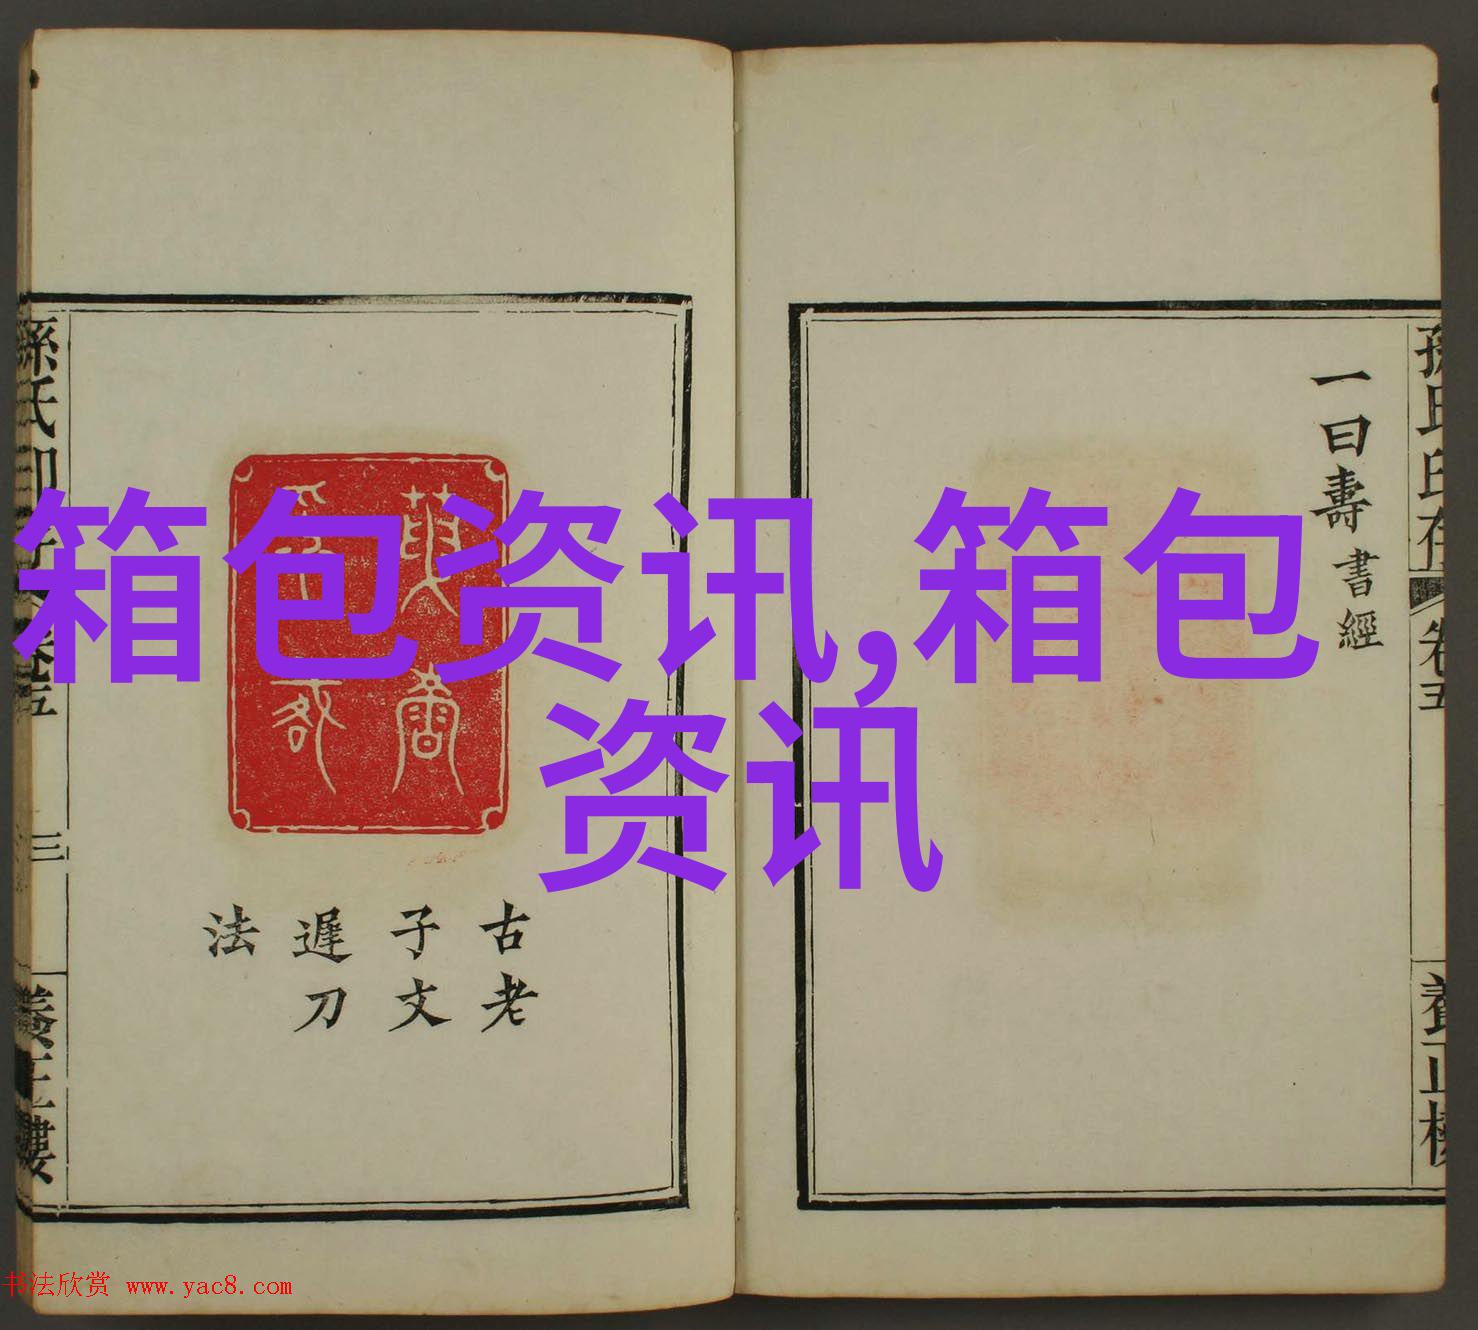 箱包资讯,箱包
资讯
一曰壽書經
孫氏印存
卷五
養正樓
古老
子文
遲刀
法
孫氏印存
卷五
三
養正樓
书法欣赏 www.yac8.com